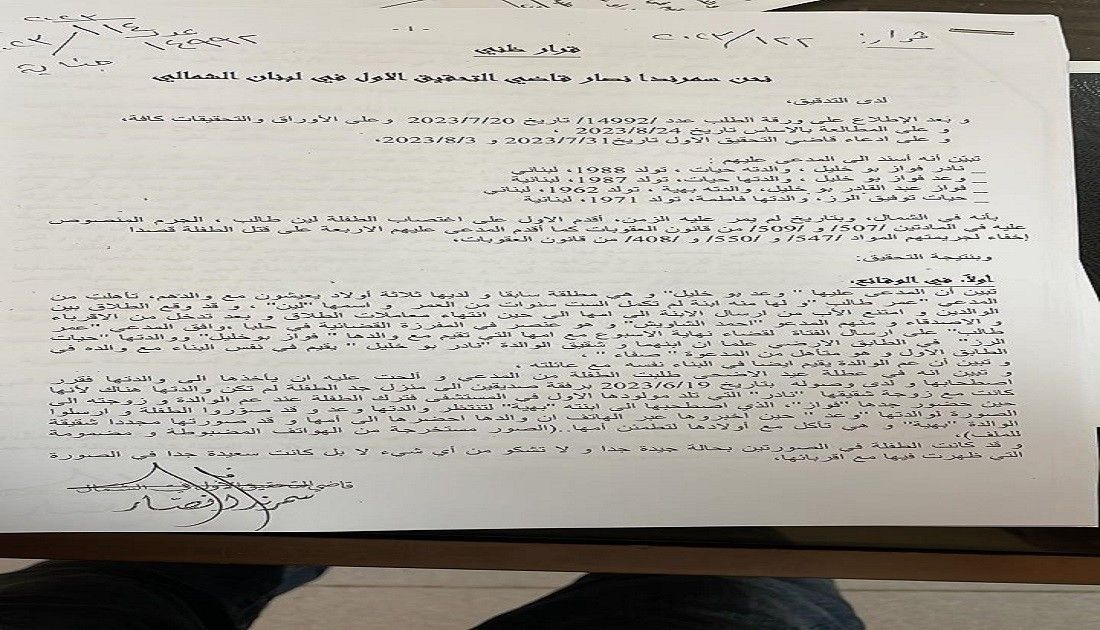 قرار: ٢٠٢٣/١٢٢
-١-
قرار ظني
نحن سمرندا نصار قاضي التحقيق الأول في لبنان الشمالي
لدى التدقيق،
و بعد الإطلاع على ورقة الطلب عدد /14992/ تاريخ 2023/7/20 وعلى الأوراق والتحقيقات كافة،
و على المطالعة بالأساس تاريخ 2023/8/24 ،
و على ادعاء قاضي التحقيق الأول تاريخ 2023/7/31 و 2023/8/3،
تبيّن انه أسند الى المدعى عليهم :
_ نادر فواز بو خليل ، والدته حيات ، تولد 1988، لبناني
_ وعد فواز بو خليل ، والدتها حيات، تولد 1987، لبنانية
_ فواز عبد القادر بو خليل، والدته بهية ، تولد 1962، لبناني
_ حيات توفيق الرز، والدتها فاطمة، تولد 1971، لبنانية
بأنه في الشمال، وبتاريخ لم يمر عليه الزمن، أقدم الاول على اغتصاب الطفلة لين طالب ، الجرم المنصوص
عليه في المادتين /507/ و /509/ من قانون العقوبات كما أقدم المدعى عليهم الاربعة على قتل الطفلة قصدا
إخفاء لجريمتهم المواد /547/ و /550/ و /408/ من قانون العقوبات،
وبنتيجة التحقيق:
أولاً في الوقائع:
تبين أن المدعى عليها " وعد بو خليل" و هي مطلقة سابقا و لديها ثلاثة أولاد يعيشون مع والدهم، تأهلت من
المدعي "عمر طالب "و لها منه ابنة لم تكمل الست سنوات من العمر و اسمها "لين" ، و قد وقع الطلاق بين
الوالدين و امتنع الأب من ارسال الابنة الى امها الى حين انتهاء معاملات الطلاق و بعد تدخل من الأقرباء
و الاصدقاء و منهم المدعو "احمد الشاويش" و هو عنصر في المفرزة القضائية في حلبا ،وافق المدعي "عمر
طالب" على ارسال الفتاة لقضاء نهاية الأسبوع مع امها التي تقيم مع والدها " فواز بوخليل" ووالدتها "حيات
الرز" في الطابق الارضي علما ان ابنهما و شقيق الوالدة "نادر بو خليل " يقيم في نفس البناء مع والده في
الطابق الاول و هو متأهل من المدعوة " صفاء " ،
و تبين أن عم الوالدة يقيم ايضا في البناء نفسه مع عائلته ،
و تبين انه في عطلة عيد الاضحى طلبت الطفلة من المدعي و ألحت عليه ان يأخذها الى والدتها فقرر
اصطحابها و لدى وصوله بتاريخ 2023/6/19 برفقة صديقين الى منزل جد الطفلة لم تكن والدتها هناك لأنها
كانت مع زوجة شقيقها "نادر" التي تلد مولودها الاول في المستشفى فترك الطفلة عند عم الوالدة و زوجته الى
حين حضور جدها "فواز" الذي اصطحبها الى ابنته "بهية" لتنتظر والدتها وعد و قد صوّروا الطفلة و ارسلوا
الصورة لوالدتها "وعد" حين أخبروها عبر الهاتف ان والدها أحضرها الى أمها و قد صورتها مجددا شقيقة
الوالدة "بهية" و هي تأكل مع أولادها لتطمئن أمها..(الصور مستخرجة من الهواتف المضبوطة و مضمومة
للملف)،
و قد كانت الطفلة في الصورتين بحالة جيدة جدا و لا تشكو من أي شيء لا بل كانت سعيدة جدا في الصورة
التي ظهرت فيها مع اقربائها،
قاضي التحقيق الأول في الشمال
سمرندا نصار